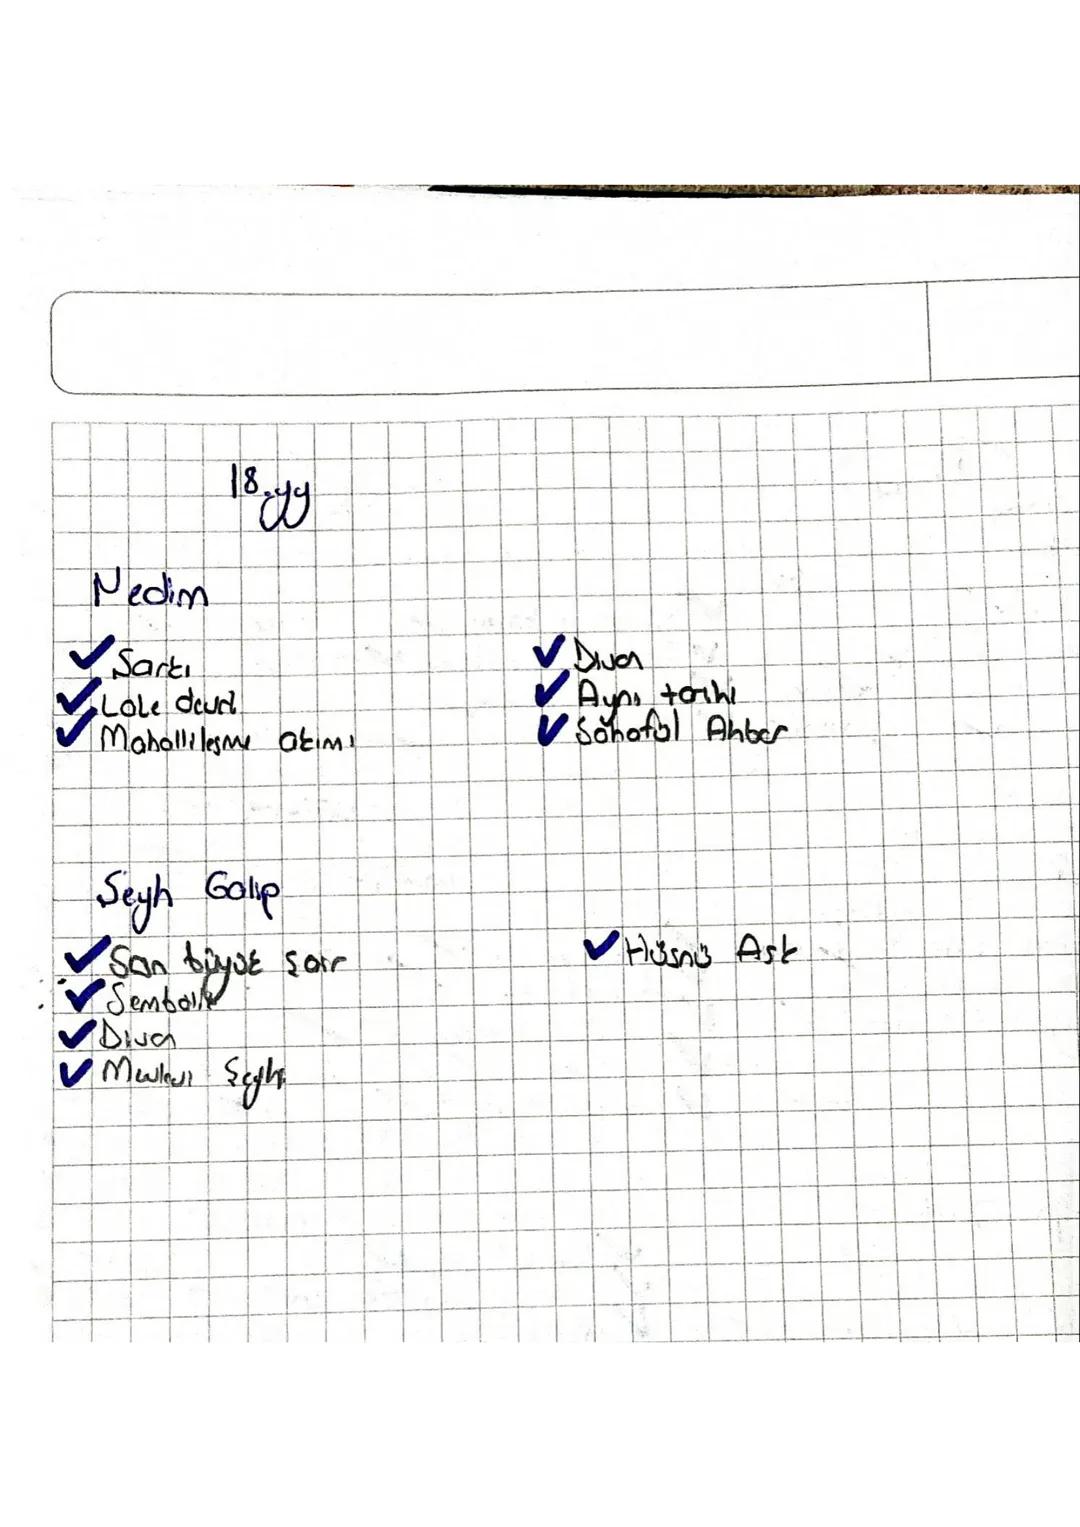 18.yy
Nedim
Şarkı
Lale devri
Mahallileşme akımı
Divan
Ayni tarihi
Sahaful Ahbar
Şeyh Galip
Son büyük şair
Sembolik
Divan
Mevlevi Şeyhi
Hüsnü Aşk